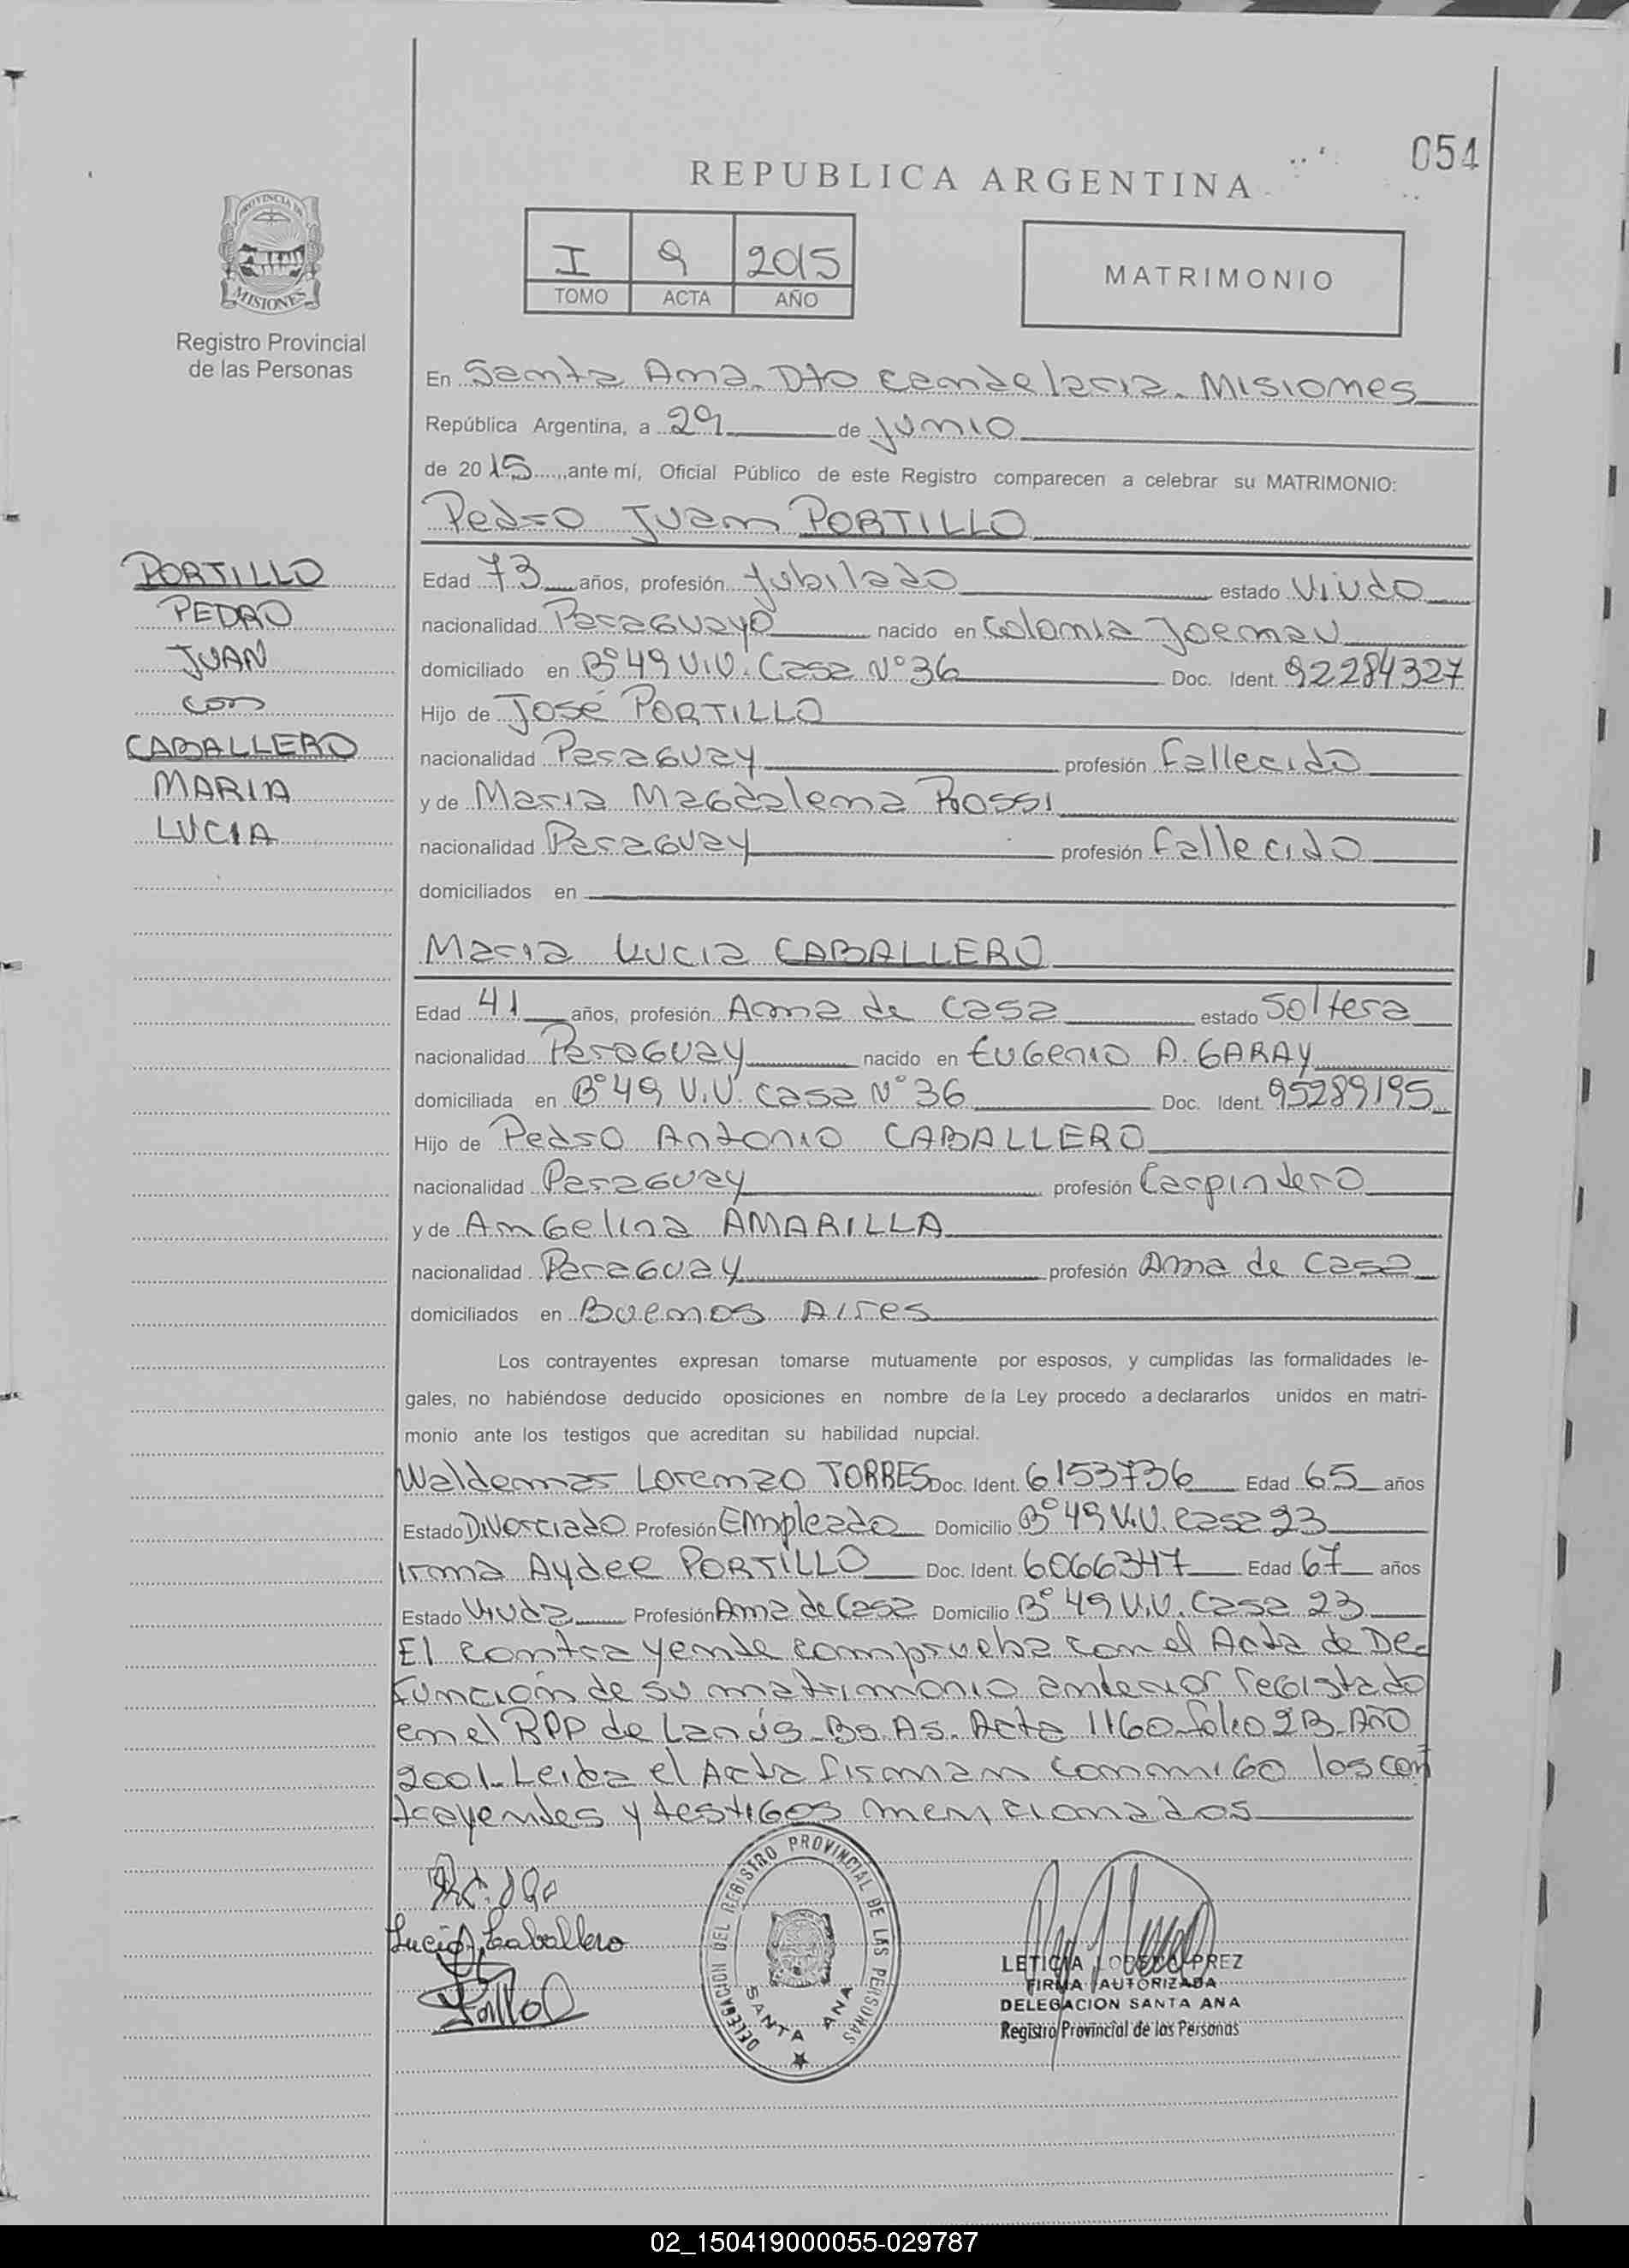 054
REPUBLICA ARGENTINA
PROVINCIA DE
MISIONES
Registro Provincial
de las Personas
I 9 2015
TOMO ACTA AÑO
MATRIMONIO
En Santa Ana. Dto Candelaria. Misiones
República Argentina, a 29 de Junio
de 2015, ante mí, Oficial Público de este Registro comparecen a celebrar su MATRIMONIO:
Pedro Juan PORTILLO
Edad 73 años, profesión Jubilado estado Viudo
nacionalidad Paraguayo nacido en Colonia
domiciliado en B° 49 Viv. Casa N° 36 Doc. Ident. 92284327
Hijo de José PORTILLO
nacionalidad Paraguay profesión Fallecido
y de Maria Magdalena Rossi
nacionalidad Paraguay profesión Fallecido
domiciliados en
Maria Lucia CABALLERO
Edad 41 años, profesión Ama de Casa estado Soltera
nacionalidad Paraguay nacido en Eugenio A. GARAY
domiciliada en B° 49 Viv. Casa N° 36 Doc. Ident. 95289195
Hijo de Pedro Antonio CABALLERO
nacionalidad Paraguay profesión Carpintero
y de Angelina AMARILLA
nacionalidad Paraguay profesión Ama de Casa
domiciliados en Buenos Aires
Los contrayentes expresan tomarse mutuamente por esposos, y cumplidas las formalidades le-
gales, no habiéndose deducido oposiciones en nombre de la Ley procedo a declararlos unidos en matri-
monio ante los testigos que acreditan su habilidad nupcial.
Waldemar Lorenzo TORRES Doc. Ident. 6153736 Edad 65 años
Estado Divorciado Profesión Empleado Domicilio B° 49 Viv. Casa 23
Irma Aydee PORTILLO Doc. Ident. 6066347 Edad 67 años
Estado Viuda Profesión Ama de Casa Domicilio B° 49 Viv. Casa 23
El contrayente comprueba con el Acta de De
función de su matrimonio anterior registado
en el RPP de Lanús-Bs.As. Acta 1160 folio 2B-Año
2001. Leida el Acta firman conmigo los con
trayentes y testigos mencionados
PORTILLO
PEDRO
JUAN
con
CABALLERO
MARIA
LUCIA
Lucia Caballero
DELEGACION DEL REGISTRO PROVINCIAL DE LAS PERSONAS
SANTA ANA
LETICIA
FIRMA AUTORIZADA
DELEGACION SANTA ANA
Registro Provincial de las Personas
02_150419000055-029787